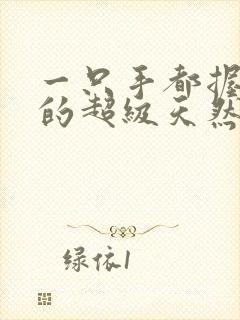 一只手都握
的超级天然
绿依1